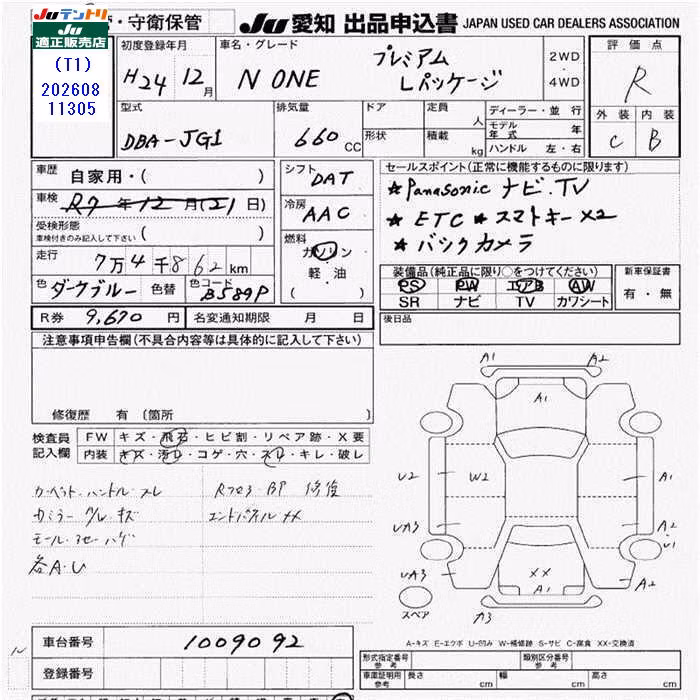 ・守衛保管
Ju 愛知 出品申込書 JAPAN USED CAR DEALERS ASSOCIATION
Juテントリ
JU 適正販売店
(T1)
202608
11305
初度登録年月 車名・グレード
H24 12月 N ONE プレミアム Lパッケージ 2WD ・ 4WD
評価点
R
外装 内装
C B
型式 排気量 ドア 定員 名 ディーラー・並行
DBA-JG1 660CC 形状 積載 kg モデル年式 年
ハンドル 左・右
車歴 自家用・( )
車検 R7年12月(21日)
受検形態
車検付きのみ記入して下さい ( )
走行 7万4千862km
色 ダークブルー 色替 色コード B589P
シフト DAT
冷房 AAC
燃料 ガソリン
軽・油
( )
セールスポイント(正常に機能するものに限ります)
★Panasonic ナビ.TV
★ETC ★スマトキー×2
★バックカメラ
装備品(純正品に限り○をつけてください)
PS PW エアB AW
SR ナビ TV カワシート
新車保証書
有・無
R券 9,670円 名変通知期限 月 日
後日品
注意事項申告欄(不具合内容等は具体的に記入して下さい)
修復歴 有(箇所 )
検査員記入欄 FW キズ・飛石・ヒビ割・リペア跡・X要
内装 キズ・汚れ・コゲ・穴・スレ・キレ・破レ
カーペット.ハンドル.スレ Rフロア.BP 修復
カミラー グレ キズ エンドパネル XX
モール.アセ.ハゲ
各A.U
A1 A2
A1
U2 W2 A1
UA3 A2 U1
UA3 XX A2
A1
スペア A3
A-キズ E-エクボ U-凹み W-補修跡 S-サビ C-腐食 XX-交換済
車台番号 1009092
登録番号
形式指定番号 参考 類別区分番号 参考
車庫証明用 参考 長さ cm 幅 cm 高さ cm